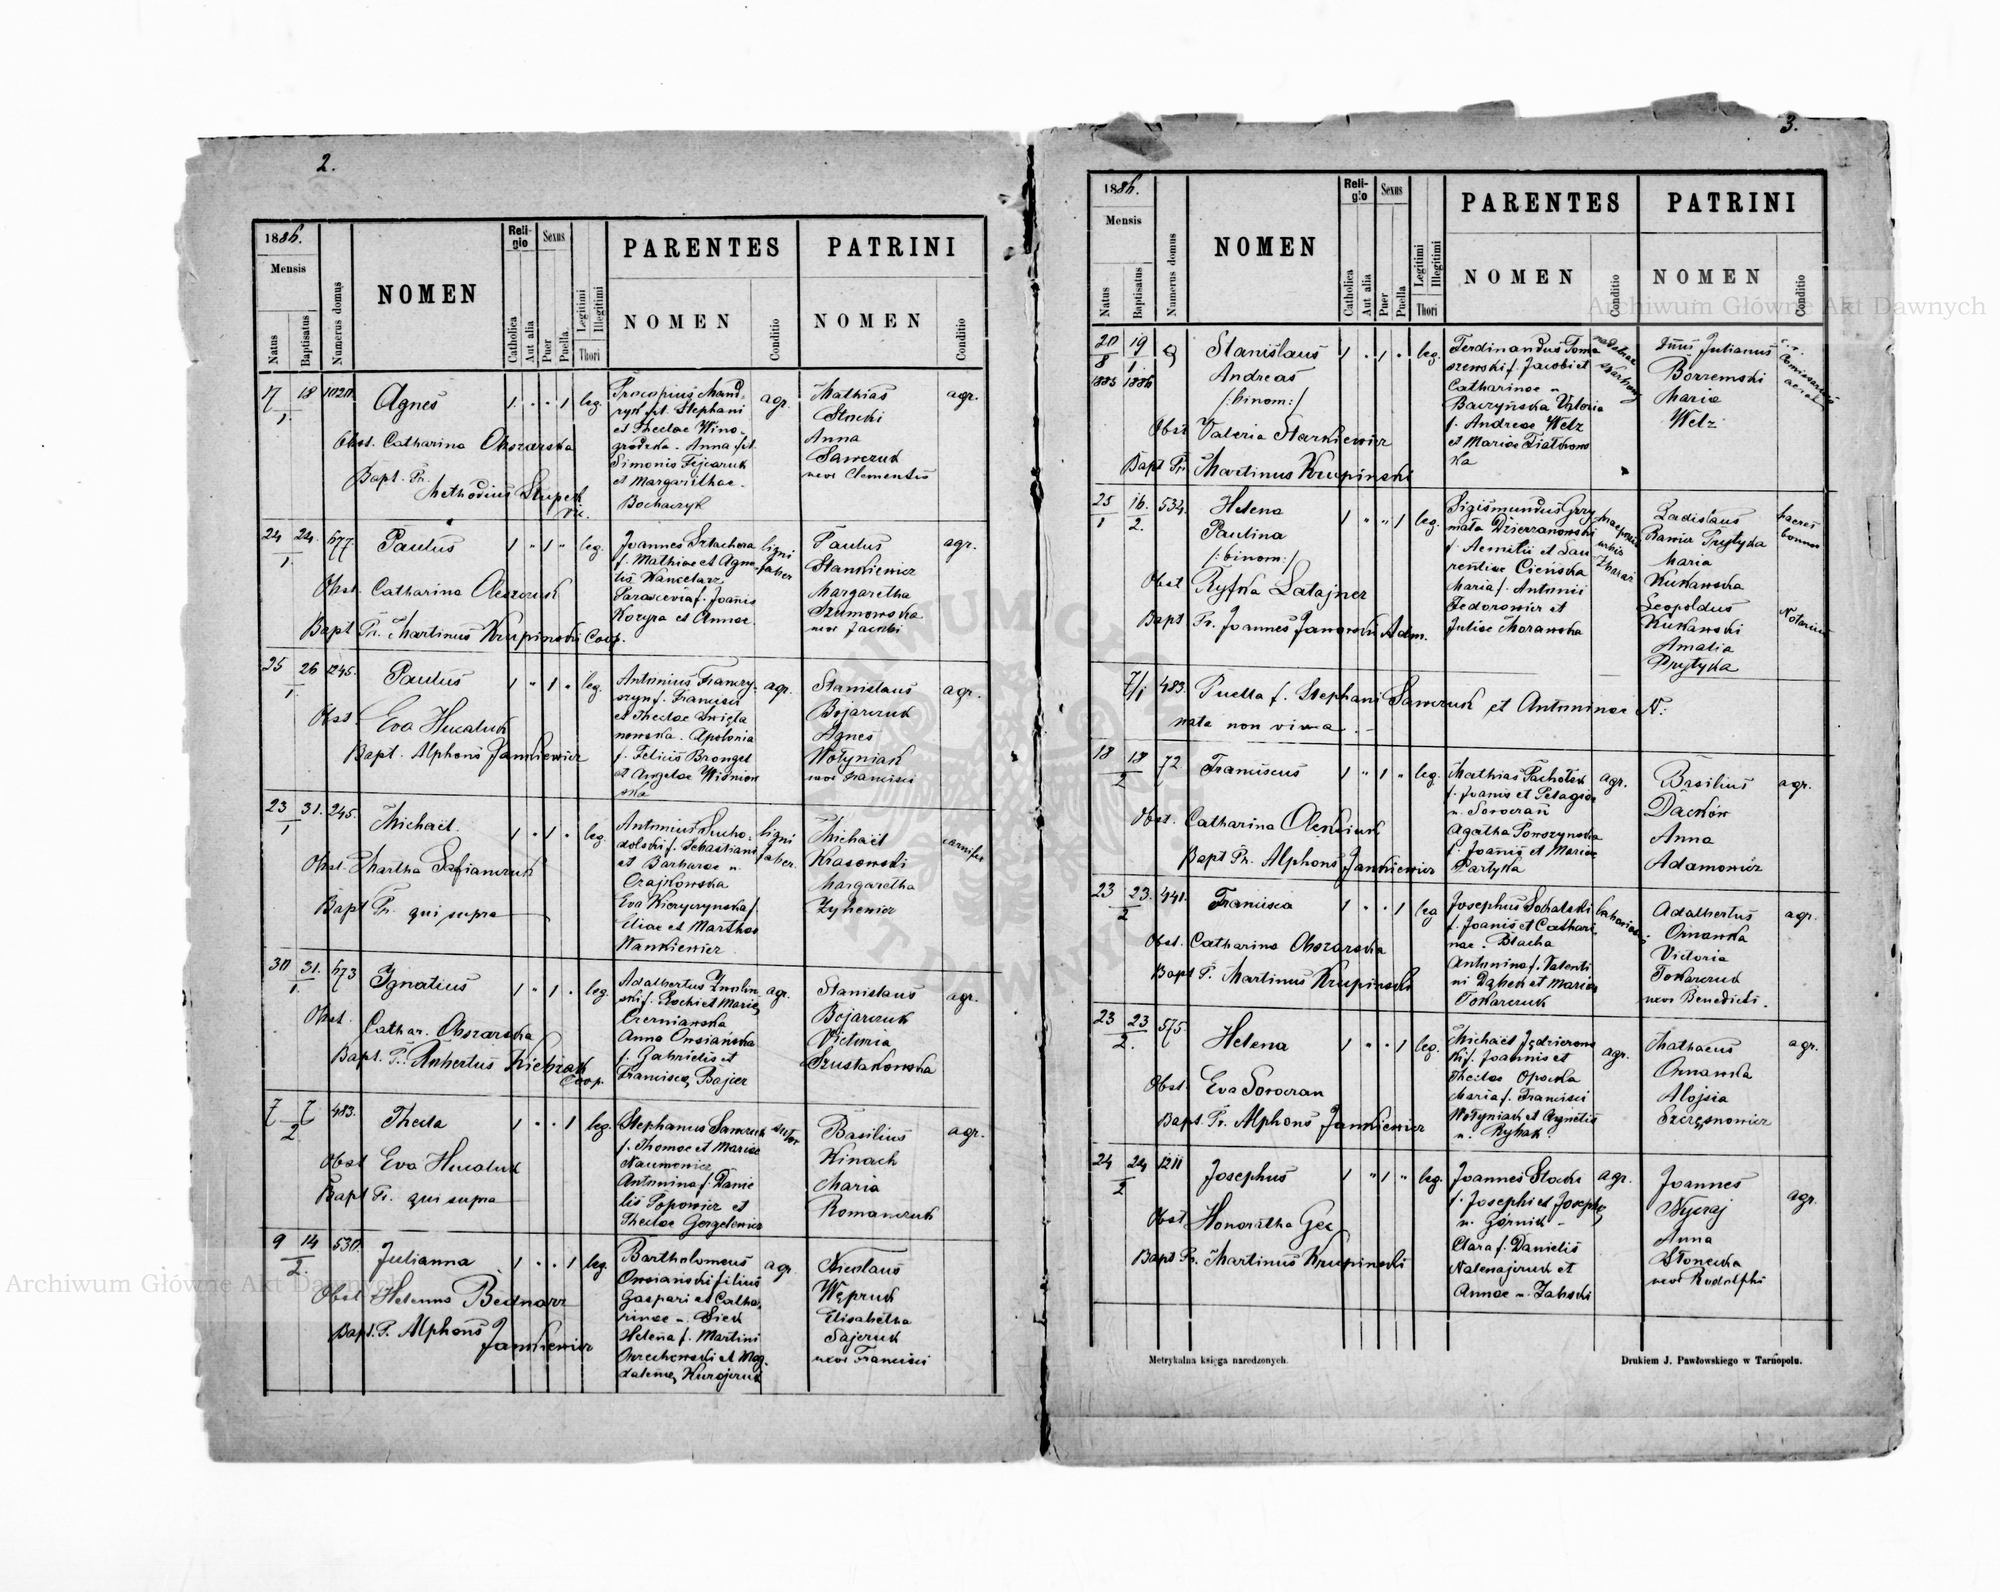 2.
1886.
Mensis
Natus
Baptisatus
Numerus domus
NOMEN
Religio
Catholica
Aut alia
Sexus
Puer
Puella
Legitimi
Illegitimi
Thori
PARENTES
NOMEN
Conditio
PATRINI
NOMEN
Conditio
17 18 1020
1.
Agnes
1 " " 1 leg.
Procopius Mand-
ryk f. Stephani
et Theclae Wino-
grodzka. Anna f.
Simonis
et Margarethae
agr.
Mathias
Słocki
Anna
Sawczuk
uxor Clementis
agr.
Obst. Catharina Obszarska
Bapt. Pr.
Methodius Słupek
vic.
24 24 677.
1.
Paulus
1 " 1 " leg.
Joannes Sztachera
f. Mathiae et Agne-
tis Kanclarz
Parascevia f. Joannis
Kozyra et Annae
ligni
faber
Paulus
Stankiewicz
Margaretha
Szumowska
uxor Jacobi
agr.
Obst. Catharina Oleszczuk
Bapt Pr. Martinus Krupinski Coop.
25 26 1245.
1
Paulus
1 " 1 " leg.
Antonius Franczy-
szyn f. Francisci
et Theclae Święta
nowska. Apolonia
f. Felicis Brongel
et Angelae Wiśniow
ska
agr.
Stanislaus
Bojarczuk
Agnes
Wołyniak
uxor Francisci
agr.
Obst.
Eva Hucaluk
Bapt. Alphons Jankiewicz
23 31. 245.
1
Michaël
1 " 1 " leg.
Antonius Sucho-
dolski f. Sebastiani
et Barbarae n.
Czajkowska
Eva Kierzynska f.
Eliae et Marthae
Wankiewicz
ligni
faber.
Michaël
Krasowski
Margaretha
Zyhewicz
carnifex
Obst. Martha Safianczuk
Bapt Pr. qui supra
30 31. 673
1.
Ignatius
1 " 1 " leg.
Adalbertus
ski f. Rochi et Mariae
Czerniawska
Anna Owsiańska
f. Gabrielis et
Franciscae Bajier
agr.
Stanislaus
Bojarczuk
Victoria
Szustakowska
agr.
Obst.
Cathar. Obszarska
Bapt. Pr.
Coop.
7 7 483.
2
Thecla
1 " " 1 leg.
Stephanus Sawczuk
f. Thomae et Mariae
Naumowicz
Antonina f. Danie
lis Popowicz et
Theclae Gergelewicz
sutor
Basilius
Kinach
Maria
Romanczuk
agr.
Obst Eva Hucaluk
Bapt Pr. qui supra
9 14 530.
2.
Julianna
1 " " 1 leg.
Bartholomeus
Owsiański filius
Gaspari et Catha-
rinae n. Siek
Helena f. Martini
Orzechowski et Mag-
dalenae Kurajczuk
agr.
Nicolaus
Wępruk
Elisabetha
Sajczuk
uxor Francisci
Obst. Helenna Bednarz
Bapt. P. Alphons
Jankiewicz
3.
1886.
Mensis
Natus
Baptisatus
Numerus domus
NOMEN
Religio
Catholica
Aut alia
Sexus
Puer
Puella
Legitimi
Illegitimi
Thori
PARENTES
NOMEN
Conditio
PATRINI
NOMEN
Conditio
20 19
8 1.
1885 1886
Stanislaus
Andreas
/:binom:/
1 " 1 " leg.
Ferdinandus Toma
szewski f. Jacobi et
Catharinae n.
Baczyńska Victoria
f. Andreae Welz
et Mariae Fiatkows
ka
Julianus
Borzemski
Maria
Welz
Obst Valeria Starkiewicz
Bapt Pr. Martinus Krupinski
25 16. 534.
1 2.
Helena
Paulina
/:binom:/
1 " " 1 leg.
Sigismundus Grzy
mała Dzierzanowski
f. Aemilii et Lau
rentiae Cieńska
Maria f. Antonii
Fedorowicz et
Juliae Morawska
Ladislaus
Rawicz Prytyka
Maria
Kukawska
Leopoldus
Kukawski
Amalia
Prytyka
haeres
bonor
Notarius
Obst Ryfka Latajner
Bapt Pr. Joannes Janowski Adm.
7/1 483.
Puella f. Stephani Sawczuk et Antoninae N:
nata non viva
18 18 72.
2
Franciscus
1 " 1 " leg.
Mathias Pachołek
f. Joannis et Pelagiae
n. Soroczan
Agatha Powszynska
f. Joannis et Mariae
Partyka
agr.
Basilius
Dackow
Anna
Adamowicz
agr.
Obst. Catharina Oleksiuk
Bapt Pr. Alphons Jankiewicz
23 23. 441.
2
Francisca
1 " " 1 leg
Josephus Sokalski
f. Joannis et Cathari-
nae Blacha
Antonina f. Valenti
ni Dąbek et Mariae
Tokarczuk
Adalbertus
Ornawka
Victoria
Tokarczuk
uxor Benedicti.
agr.
Obst. Catharina Obszarska
Bapt P. Martinus Krupinski
23 23 575.
2.
Helena
1 " " 1 leg.
Michaël Jędrzejows
ki f. Joannis et
Theclae Opocka
Maria f. Francisci
Wołyniak et Agnetis
n. Rybak
agr.
Mathaeus
Ornawka
Alojsia
Szczęsnowicz
agr.
Obst. Eva Soroczan
Bapt. Pr. Alphons Jankiewicz
24 24 1211
2
Josephus
1 " 1 " leg.
Joannes Słocki
f. Josephi et Josephae
n. Górnik
Clara f. Danielis
Nalenajczuk et
Annae n. Zahski
agr.
Joannes
Nyczaj
Anna
Słonecka
uxor Rudolphi
agr.
Obst Honoratha Gec
Bapt Pr. Martinus Krupinski
Metrykalna księga narodzonych.
Drukiem J. Pawłowskiego w Tarnopolu.
Archiwum Główne Akt Dawnych
Archiwum Główne Akt Dawnych